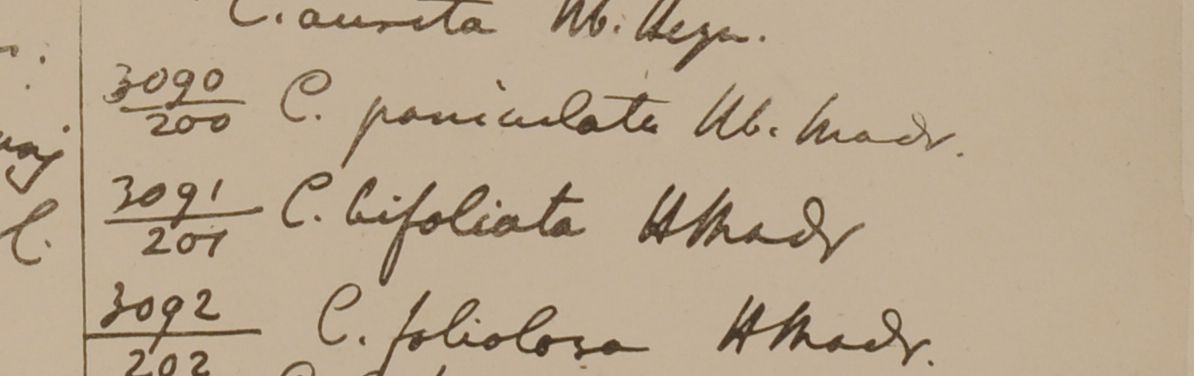 C. aurita Hb. Heyn.
3090/200 C. paniculata Hb. Madr.
3091/201 C. bifoliata H Madr
3092/202 C. foliolosa H Madr.
C.